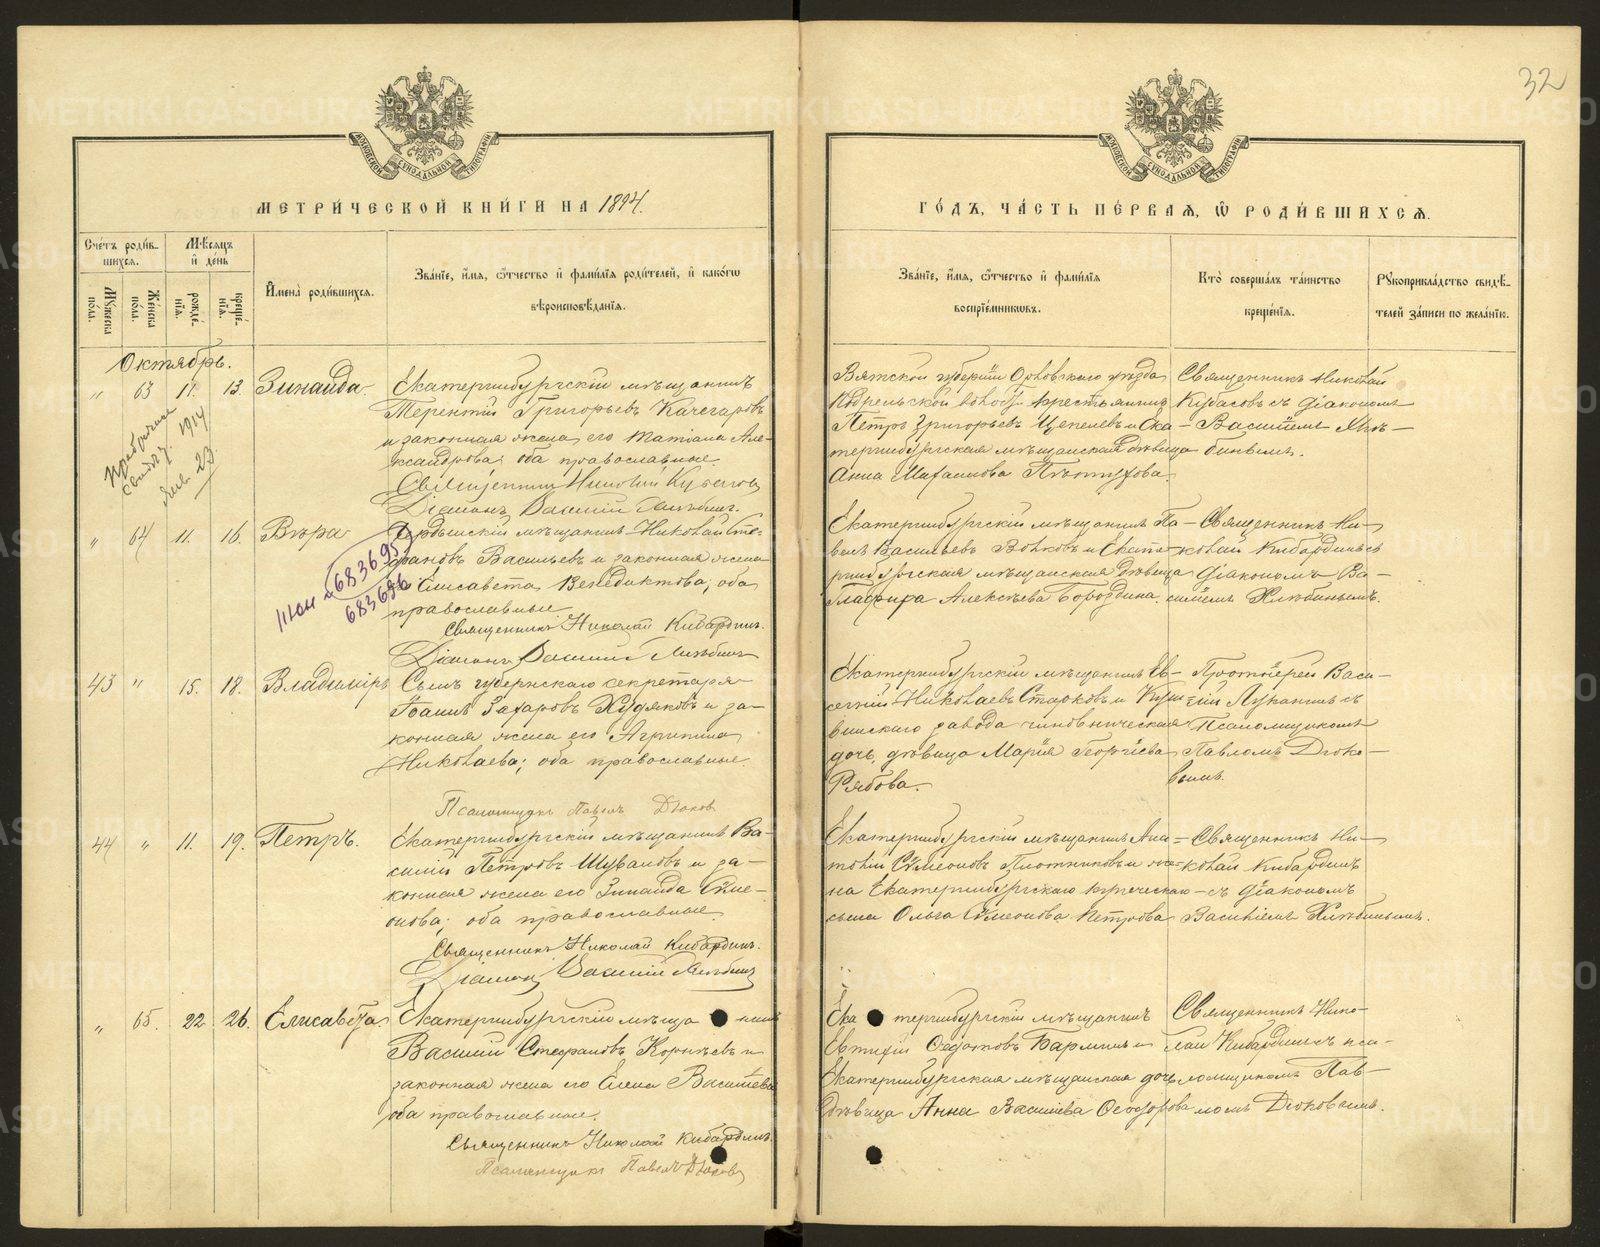 32
МЕТРИЧЕСКОЙ КНИГИ НА 1894.
Счетъ родив-
шихся.
Мѣсяцъ
и день
Мужеска
пола.
Женска
пола.
рожде-
нія.
креще-
нія.
Имена родившихся.
Званіе, имя, отчество и фамилія родителей, и какого
вѣроисповѣданія.
Октябрь.
" 63 11. 13. Зинаида.
Екатеринбургскій мѣщанинъ
Терентій Григорьевъ Качегаровъ
и законная жена его Татіана Але-
ксандрова; оба православные.
Священникъ Николай
Діаконъ Василій Хлѣбинъ.
1914
Янв. 23
" 64 11. 16. Вѣра
мѣщанинъ Николай Сте-
фановъ Васильевъ и законная жена
его Елисавета Венедиктова; оба
православные
Священникъ Николай Кибардинъ.
Діаконъ Василій Хлѣбинъ
683695
683696
43 " 15. 18. Владиміръ
Сынъ губернскаго секретаря
Іоаннъ Захаровъ Худяковъ и за-
конная жена его Агрипина
Николаева; оба православные.
Псаломщикъ Павелъ Дюков
44 " 11. 19. Петръ.
Екатеринбургскій мѣщанинъ Ва-
силій Петровъ и за-
конная жена его Зинаида Симе-
онова; оба православные
Священникъ Николай Кибардинъ.
Діаконъ Василій Хлѣбинъ
" 65. 22 26. Елисавета.
Екатеринбургскій мѣща нинъ
Василій Стефановъ Корнѣевъ и
законная жена его Елена Васильева
оба православные.
Священникъ Николай Кибардинъ.
Псаломщикъ Павелъ Дюковъ
ГОДЪ, ЧАСТЬ ПЕРВАЯ, Ѡ РОДИВШИХСЯ.
Званіе, имя, отчество и фамилія
воспріемниковъ.
Кто совершалъ таинство
крещенія.
Рукоприкладство свидѣ-
телей записи по желанію.
Вятской губерніи Орловскаго уѣзда
волости крестьянинъ
Петръ Григорьевъ Цепелевъ и Ека-
теринбургская мѣщанская дѣвица
Анна
Священникъ Николай
съ діакономъ
Василіемъ Хлѣ-
бинымъ.
Екатеринбургскій мѣщанинъ Па-
велъ Васильевъ Волковъ и Екате-
ринбургская мѣщанская дѣвица
Глафира Алексѣева Бородина.
Священникъ Ни-
колай Кибардинъ съ
діакономъ Ва-
силіемъ Хлѣбинымъ.
Екатеринбургскій мѣщанинъ Ев-
геній Николаевъ Старковъ и Куш-
винскаго завода чиновническая
дочь, дѣвица Марія Георгіева
Рябова.
Протоіерей Васи-
лій Луканинъ съ
Псаломщикомъ
Павломъ Дюко-
вымъ.
Екатеринбургскій мѣщанинъ Ана-
толій Симеоновъ Плотниковъ и же-
на Екатеринбургскаго купеческаго
сына Ольга Симеонова Петрова
Священникъ Ни-
колай Кибардинъ
съ діакономъ
Василіемъ Хлѣбинымъ.
Ека теринбургскій мѣщанинъ
Евтихій Федотовъ и
Екатеринбургская мѣщанская дочь
дѣвица Анна Васильева Ѳеодорова
Священникъ Нико-
лай Кибардинъ съ пса-
ломщикомъ Пав-
ломъ Дюковымъ.